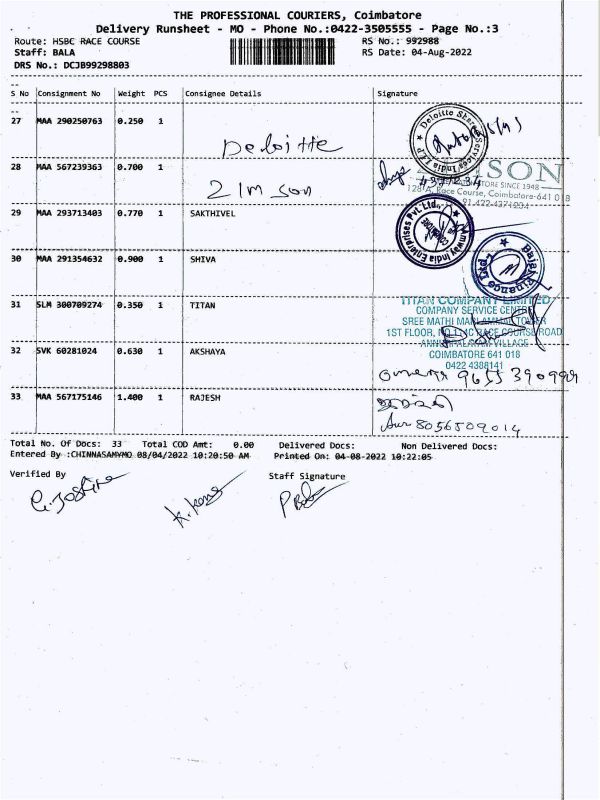 THE PROFESSIONAL COURIERS, Coimbatore
Delivery Runsheet - MO - Phone No.:0422-3505555 - Page No.:3
Route: HSBC RACE COURSE RS No.: 992988
Staff: BALA RS Date: 04-Aug-2022
DRS No.: DCJB99298803
S No Consignment No Weight PCS Consignee Details Signature
27 MAA 290250763 0.250 1 Deloitte
Deloitte Shared Services India LLP
28 MAA 567239363 0.700 1 21m son
SON
COIMBATORE SINCE 1948
128/A, Race Course, Coimbatore-641 018
91-422-4371234
29 MAA 293713403 0.770 1 SAKTHIVEL
Amway India Enterprises Pvt. Ltd.
COIMBATORE
30 MAA 291354632 0.900 1 SHIVA
Bajaj Finance Ltd.
31 SLM 300709274 0.350 1 TITAN
TITAN COMPANY LIMITED
COMPANY SERVICE CENTRE
SREE MATHI MARIAMMAN TOWER
1ST FLOOR, RACE COURSE ROAD
VILLAGE
COIMBATORE 641 018
0422 4388141
32 SVK 60281024 0.630 1 AKSHAYA
9655390999
33 MAA 567175146 1.400 1 RAJESH
8056509014
Total No. Of Docs: 33 Total COD Amt: 0.00 Delivered Docs: Non Delivered Docs:
Entered By :CHINNASAMYMO 08/04/2022 10:20:50 AM Printed On: 04-08-2022 10:22:05
Verified By Staff Signature